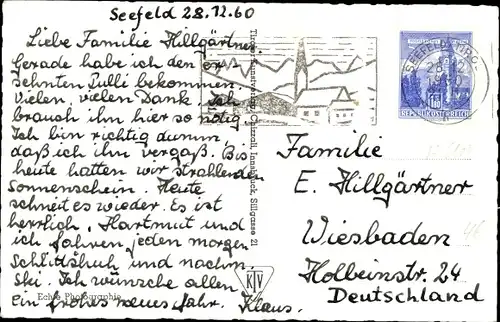 Seefeld 28.12.60
Liebe Familie Hillgärtner
Gerade habe ich den er-
sehnten Pulli bekommen.
Vielen, vielen Dank. Ich
brauch ihn hier so nötig
Ich bin richtig dumm,
daß ich ihn vergaß. Bis
heute hatten wir strahlenden
Sonnenschein. Heute
schneit es wieder. Es ist
herrlich. Hartmut und
ich fahren jeden morgen
Schlittschuh und nachm.
Ski. Ich wünsche allen
ein frohes neues Jahr. Klaus.
Echte Photographie
Tiroler Kunstverlag Chizzali, Innsbruck, Sillgasse 21
KTV
SEEFELD, TIROL
1.80
REPUBLIK ÖSTERREICH
Familie
E. Hillgärtner
Wiesbaden
Holbeinstr. 24
Deutschland